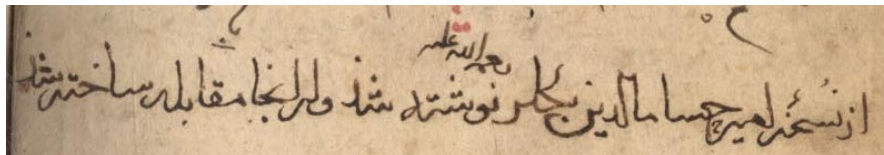 رحمة الله علیه
از نسخهٔ امیر حسام الدین بیگلر نوشته شد و از انجا مقابله ساخته شد